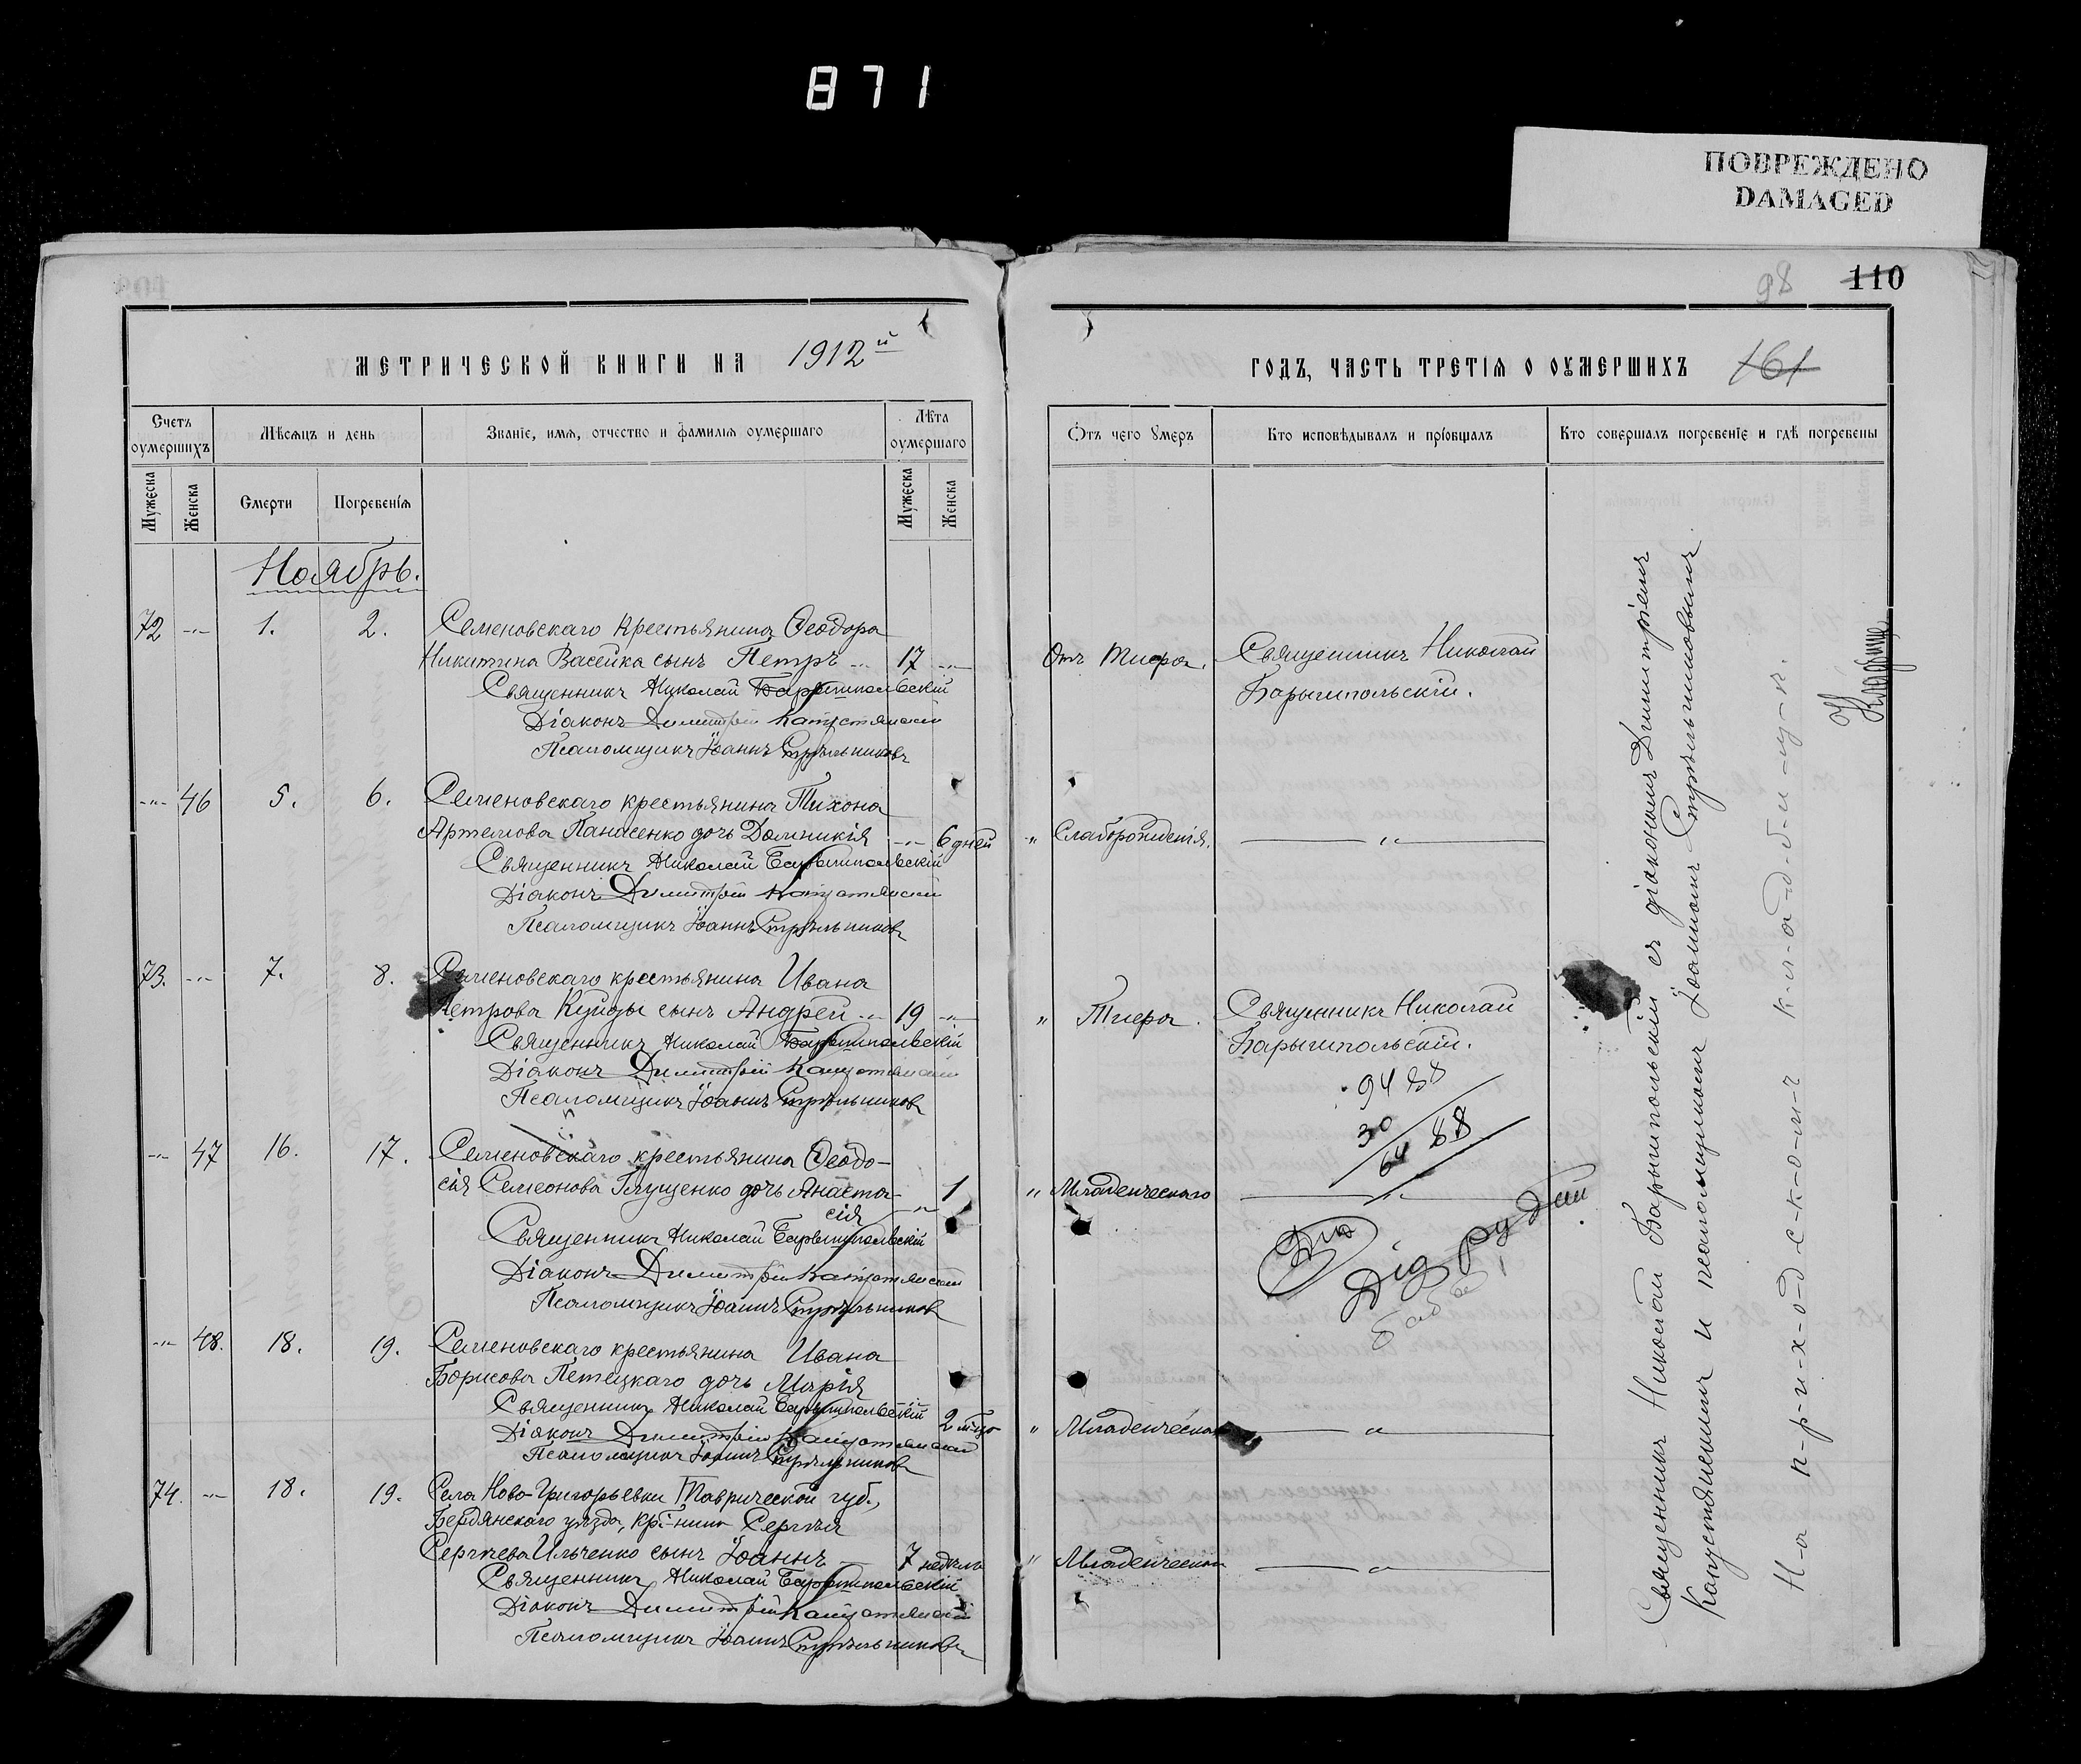 871
ПОВРЕЖДЕНО
DAMAGED
98 110
МЕТРИЧЕСКОЙ КНИГИ НА 1912й
Счетъ оумершихъ
Мѣсяцъ и день
Званіе, имя, отчество и фамилія оумершаго
Лѣта оумершаго
Мужеска
Женска
Смерти
Погребенія
Мужеска
Женска
Ноябрь.
72 -"- 1. 2. Семеновскаго крестьянина Ѳеодора
Никитина Васейка сынъ Петръ -"- 17 -"-
Священникъ Николай Барышпольскій
Діаконъ Димитрій Капустянскій
Псаломщикъ Іоаннъ Стрѣльниковъ
-"- 46 5. 6. Семеновскаго крестьянина Тихона
Артемова Панасенко дочь Домникія -"- 6 дней
Священникъ Николай Барышпольскій
Діаконъ Димитрій Капустянскій
Псаломщикъ Іоаннъ Стрѣльниковъ
73. -"- 7. 8. Семеновскаго крестьянина Ивана
Петрова Куйды сынъ Андрей -"- 19 -"-
Священникъ Николай Барышпольскій
Діаконъ Димитрій Капустянскій
Псаломщикъ Іоаннъ Стрѣльниковъ
-"- 47 16. 17. Семеновскаго крестьянина Ѳеодо-
сія Семеонова Глущенко дочь Анаста- -"- 1
сія
Священникъ Николай Барышпольскій
Діаконъ Димитрій Капустянскій
Псаломщикъ Іоаннъ Стрѣльниковъ
-"- 48. 18. 19. Семеновскаго крестьянина Ивана
Борисова Петецкаго дочь Марія
Священникъ Николай Барышпольскій 2
Діаконъ Димитрій Капустянскій
Псаломщикъ Іоаннъ Стрѣльниковъ
74. -"- 18. 19. Села Ново-Григорьевки Таврической губ.,
Бердянскаго уѣзда, кр-нина Сергѣя
Сергѣева Ильченко сынъ Іоаннъ 7 недѣль
Священникъ Николай Барышпольскій
Діаконъ Димитрій Капустянскій
Псаломщикъ Іоаннъ Стрѣльниковъ
ГОДЪ, ЧАСТЬ ТРЕТІЯ О ОУМЕРШИХЪ 161
Отъ чего умеръ
Кто исповѣдывалъ и пріобщалъ
Кто совершалъ погребеніе и гдѣ погребены
Отъ Тифа. Священникъ Николай
Барышпольскій.
" Слаборожденія. "
" Тифа. Священникъ Николай
Барышпольскій.
94 88
30
64 88
" Младенческаго "
Дід
баба
" Младенческаго "
" Младенческаго "
Священникъ Николай Барышпольскій съ діакономъ Димитріемъ
Капустянскимъ и псаломщикомъ Іоанномъ Стрѣльниковымъ.
Н-а п-р-и-х-о-д-с-к-о-м-ъ к-л-а-д-б-и-щ-ѣ.